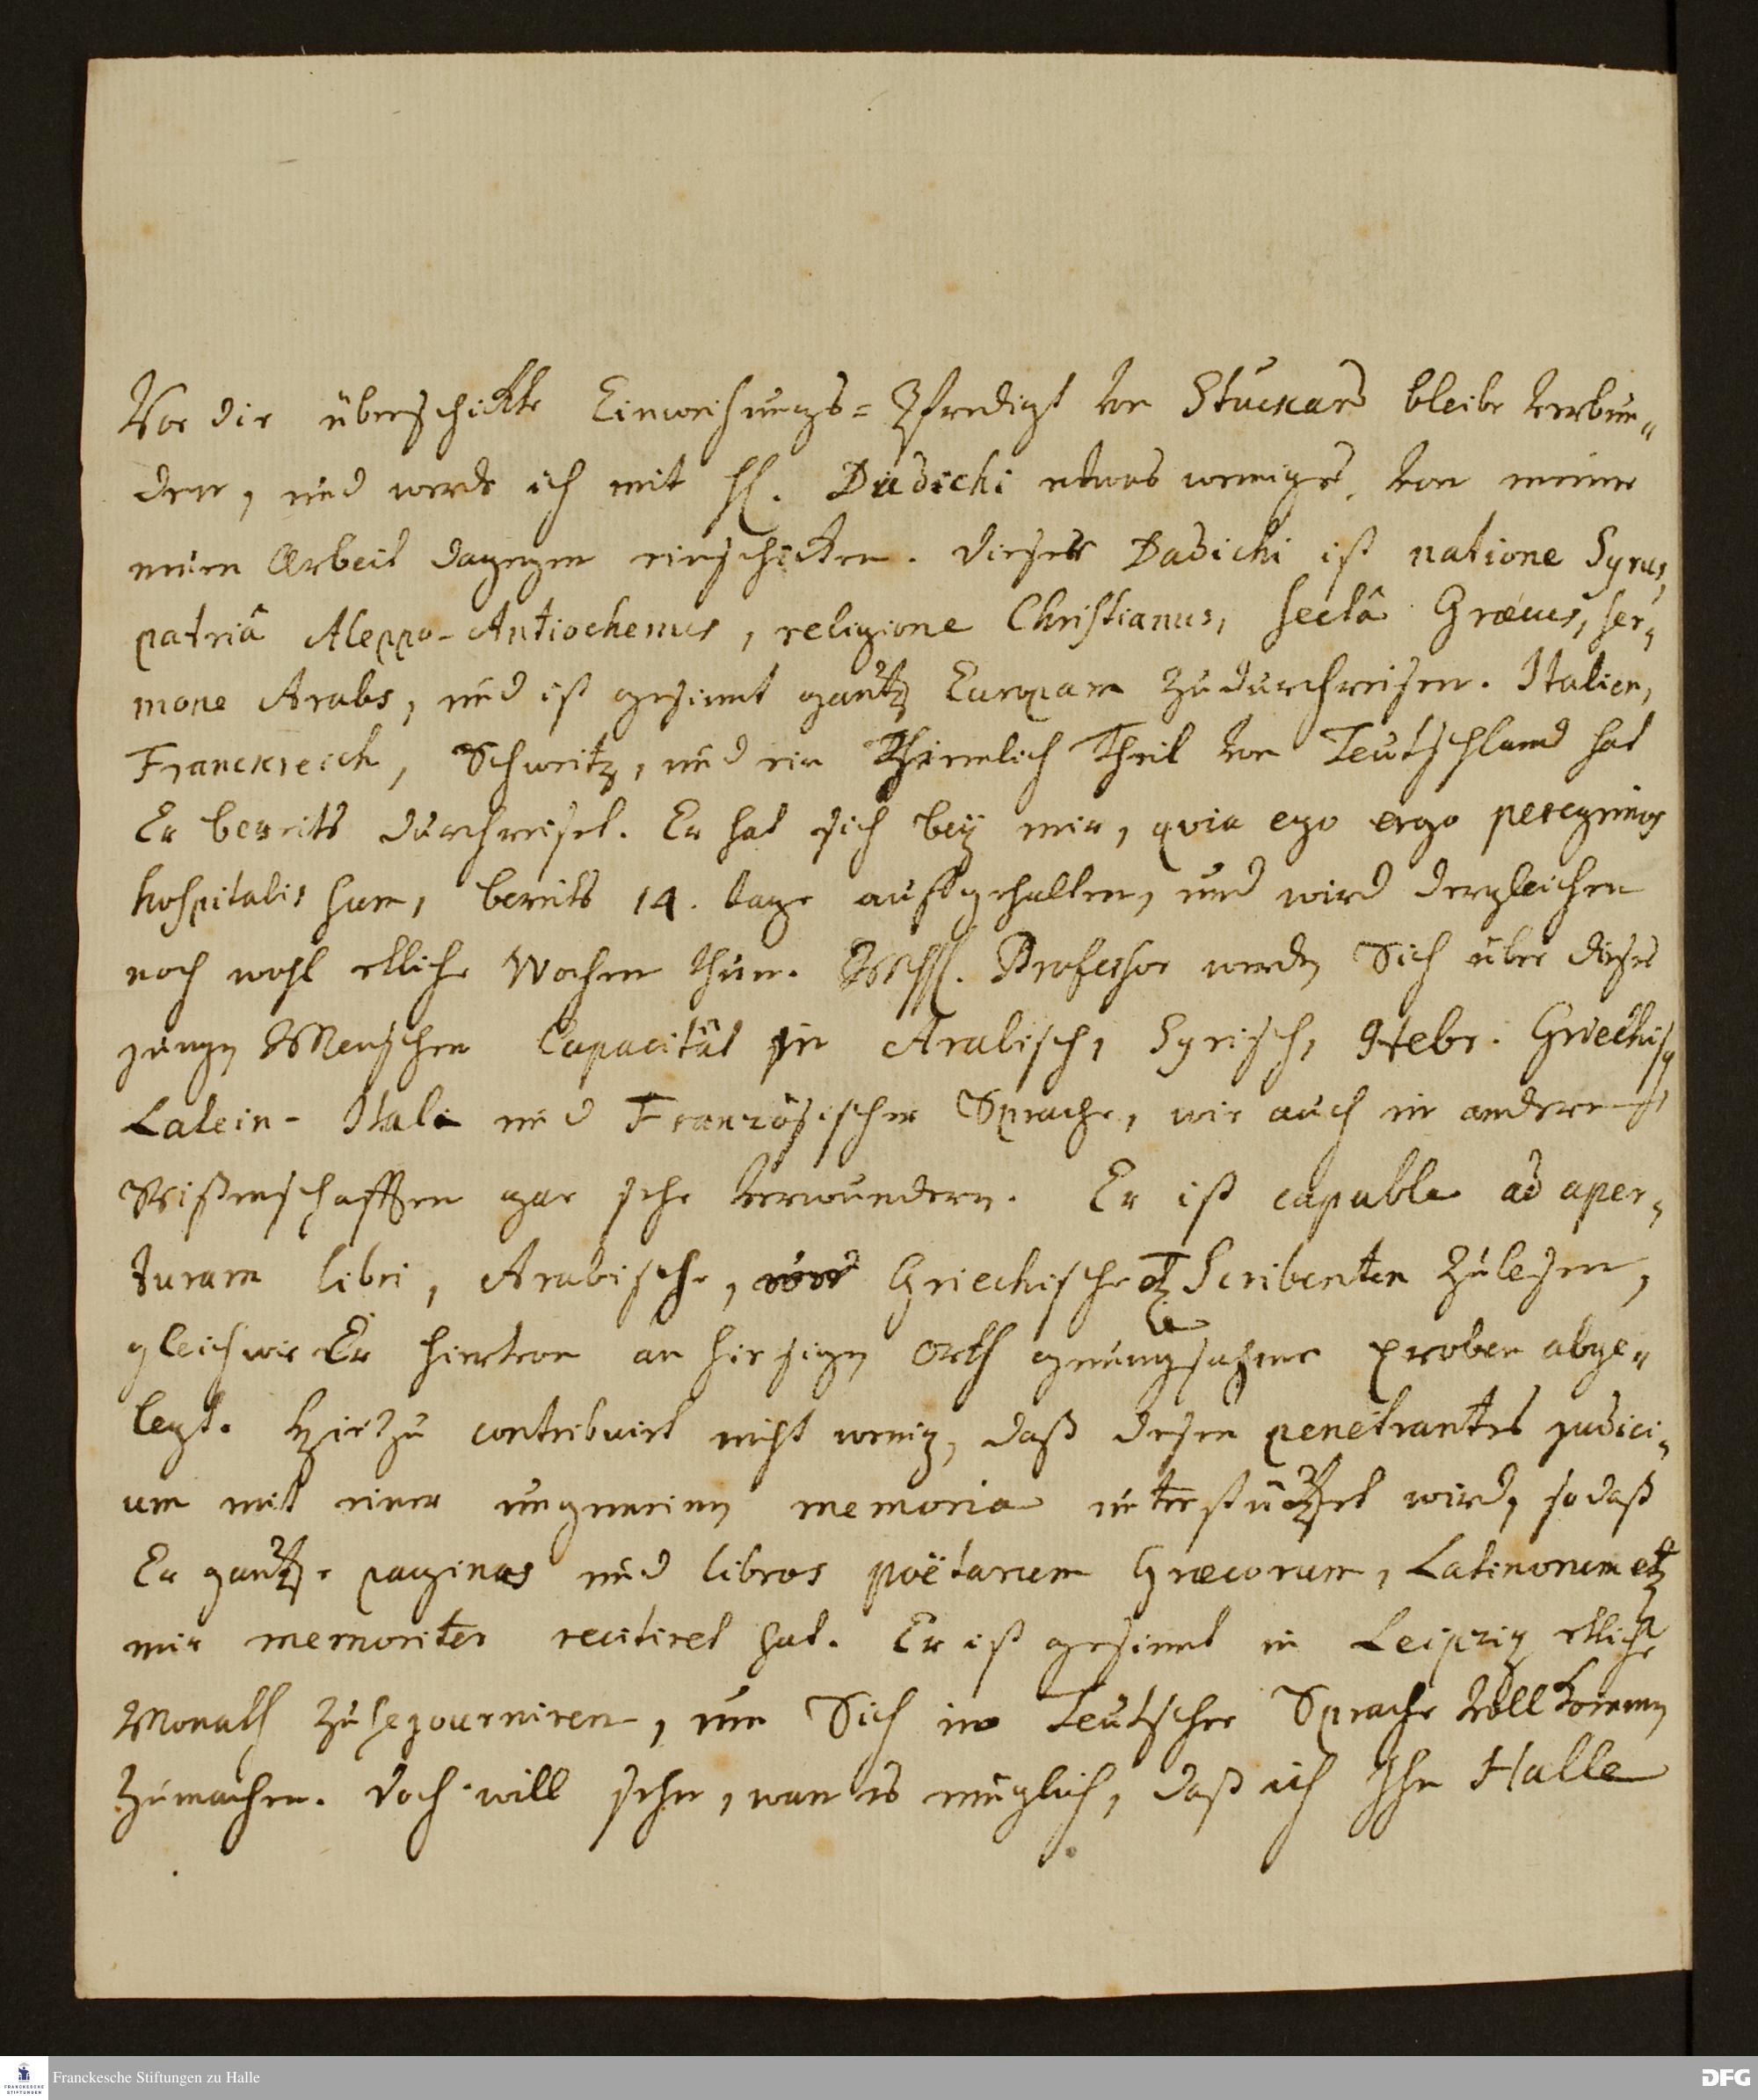 Vor die überschickte Einweihungs-Predigt von Stuckard bleibe verbun„
den, und werde ich mit H. Dadichi etwas weniges, von meiner
neüen Arbeit dagegen einschicken. Dieser Dadichi ist natione Syrus,
patriâ Aleppo-Antiochenus, religione Christianus, sectâ Græcus, ser„
mone Arabs, und ist gesinnt gantz Europam zu durchreisen. Italien,
Franckreich, Schweitz, und ein Ziemlich Theil von Teutschland hat
Er bereits durchreiset. Er hat sich beÿ mir, qvia ego erga peregrinos
hospitalis sum, bereits 14. tage auffgehalten, und wird dergleichen
noch wohl etliche Wochen thun. MhH. Professor werden Sich über dieses
jungen Menschen Capacität in Arabisch, Syrisch, Hebr. Griechisch
Latein- Itali- und Französischer Sprache, wie auch in anderen
Wißenschafften gar sehr verwundern. Er ist capable ad aper„
turam libri, Arabische, Griechische etc Scribenten zu lesen,
gleichwie Er hiervon an hiesigen Orth gnungsahme proben abge„
legt. Hierzu contribuirt nicht wenig, daß desen penetrantes judici„
um mit einer ungemeinen memoria unterstützet wird, so daß
Er gantze paginas und libros poëtarum Græcorum, Latinorum etc
mir memoriter recitiret hat. Er ist gesinnt in Leipzig etliche
Monath zu sejourniren, um Sich in Teutscher Sprache vollkommen
zumachen. Doch will sehn, wan es müglich, daß ich Ihn Halle
Franckesche Stiftungen zu Halle
FRANCKESCHE STIFTUNGEN
DFG